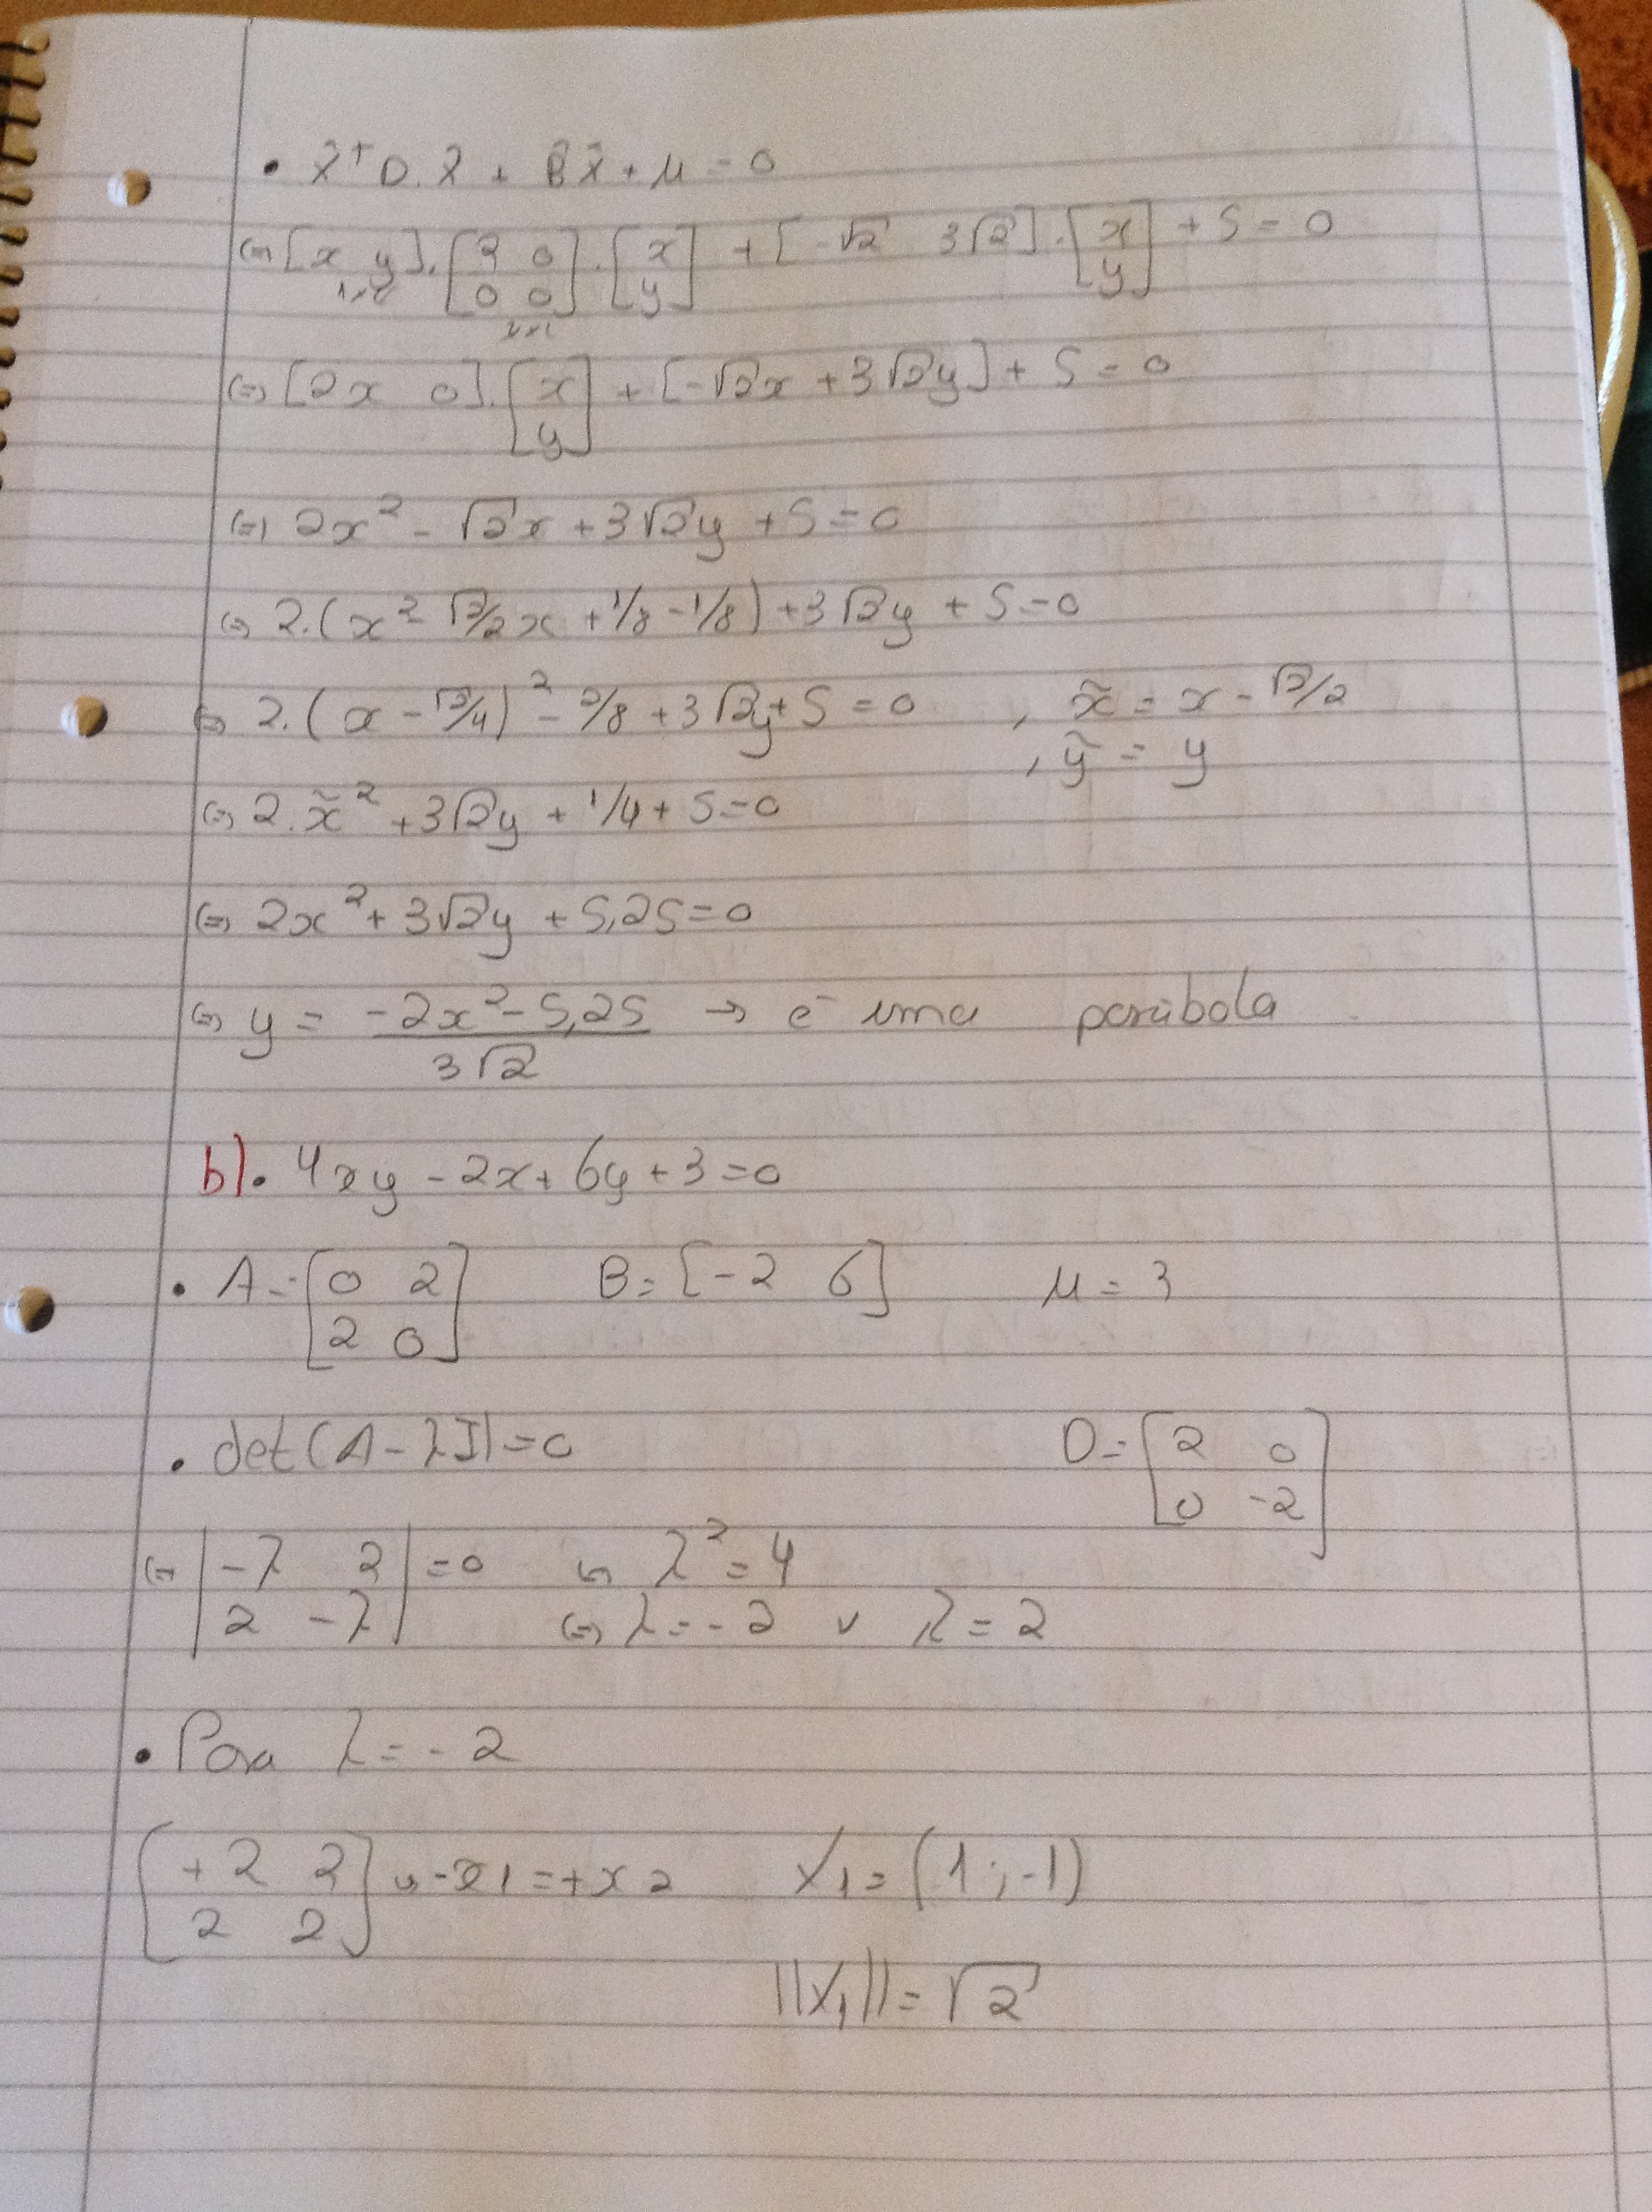 • X̂ᵀ D. X̂ + B̂ X̂ + μ = 0
(=) [x y]. [2 0; 0 0] . [x; y] + [-√2 3√2] . [x; y] + 5 = 0
1x2
2x2
(=) [2x 0]. [x; y] + [-√2x + 3√2y] + 5 = 0
(=) 2x² - √2x + 3√2y + 5 = 0
(=) 2.(x² √2/2x + 1/8 - 1/8) + 3√2y + 5 = 0
(=) 2.(x - √2/4)² - 2/8 + 3√2y + 5 = 0 , x̃ = x - √2/2
, ỹ = y
(=) 2.x̃² + 3√2y + 1/4 + 5 = 0
(=) 2x² + 3√2y + 5,25 = 0
(=) y = (-2x² - 5,25)/(3√2) → é uma parábola
b). 4xy - 2x + 6y + 3 = 0
• A = [0 2; 2 0] B = [-2 6] μ = 3
• det(A - λI) = 0 D = [2 0; 0 -2]
(=) |-λ 2; 2 -λ| = 0 (=) λ² = 4
(=) λ = -2 v λ = 2
• Para λ = -2
[+2 2; 2 2] (=) -x1 = +x2 X₁ = (1 ; -1)
||X₁|| = √2